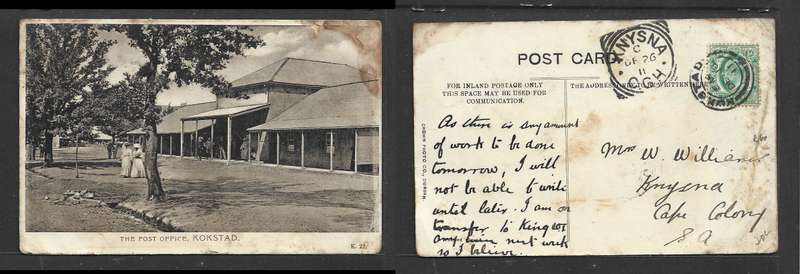 THE POST OFFICE, KOKSTAD.
K. 22.
POST CARD
KNYSNA
C
DE 26
11
C.G.H.
FOR INLAND POSTAGE ONLY
THIS SPACE MAY BE USED FOR
COMMUNICATION.
THE ADDRESS WRITTEN
PHOTO CO., DURBAN.
As there is any amount
of work to be done
tomorrow, I will
not be able to write
until later. I am on
transfer to King
next week
so I believe.
Mrs W. Williams
Knysna
Cape Colony
S A